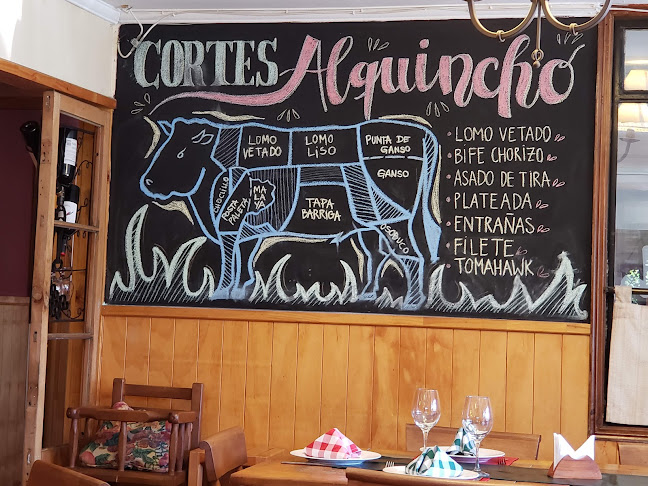 CORTES Alquincho
LOMO VETADO
LOMO LISO
PUNTA DE GANSO
GANSO
CHOCLILLO
POSTA PALETA
MALAYA
TAPA BARRIGA
OSOBUCO
• LOMO VETADO
• BIFE CHORIZO
• ASADO DE TIRA
• PLATEADA
• ENTRAÑAS
• FILETE
• TOMAHAWK